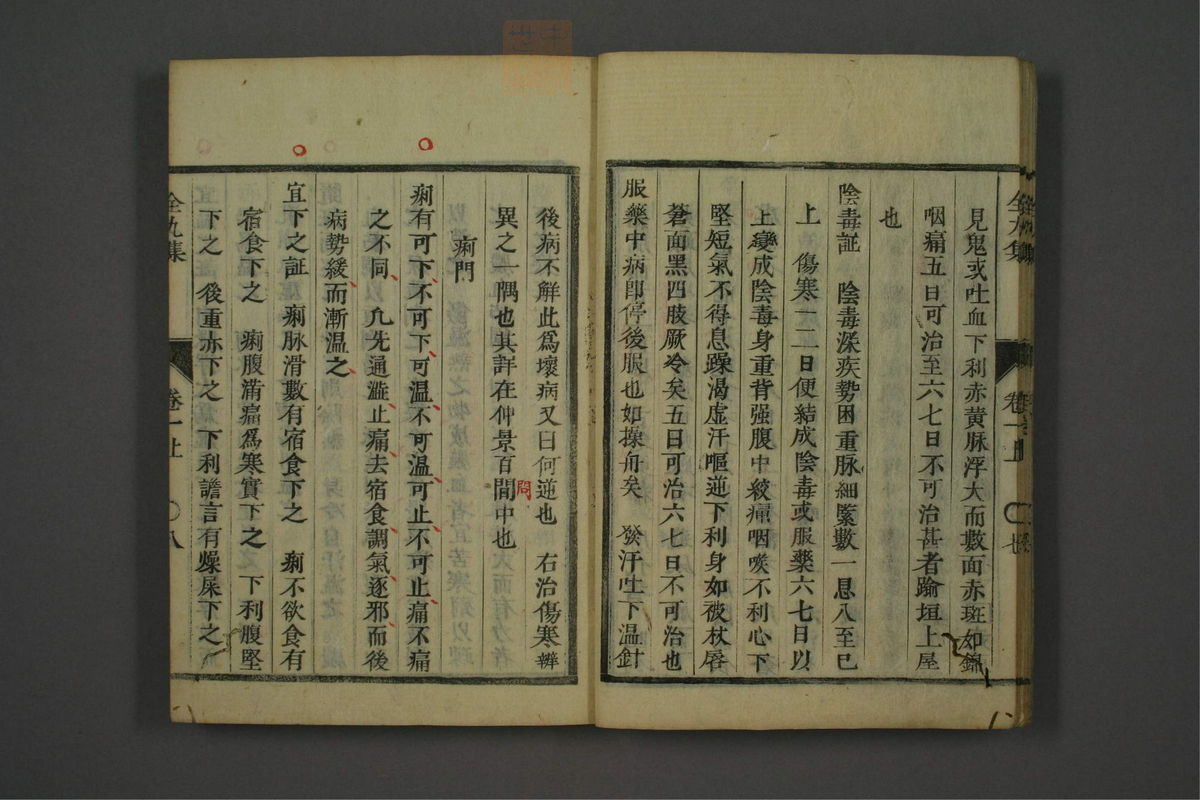 見鬼或吐血下利赤黄脉浮大而數面赤斑如錦
咽痛五日可治至六七日不可治甚者踰垣上屋
也
陰毒証 陰毒深疾勢困重脉細緊數一息八至已
上 傷寒一二日便結成陰毒或服藥六七日以
上變成陰毒身重背强腹中絞痛咽喉不利心下
堅短氣不得息躁渴虚汗嘔逆下利身如被杖唇
蒼面黑四肢厥冷矣五日可治六七日不可治也
服藥中病即停後服也如操舟矣 發汗吐下温針
全九集
卷一上
〇七
後病不解此爲壞病又曰何逆也 右治傷寒辨
異之一隅也其詳在仲景百問中也
問
痢門
痢有可下不可下可温不可温可止不可止痛不痛
之不同凢先通澁止痛去宿食調氣逐邪而後
病勢緩而漸温之
宜下之証 痢脉滑數有宿食下之 痢不欲食有
宿食下之 痢腹滿痛爲寒實下之 下利腹堅
下之 後重亦下之 下利譫言有燥屎下之
全九集
卷一上
〇八